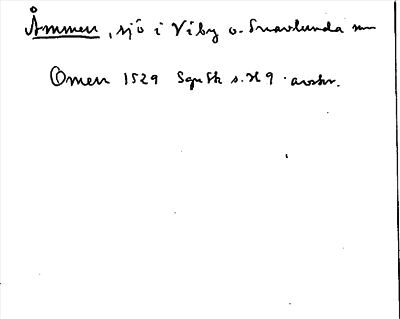 Åmmen, sjö i Viby o. Snavlunda sn
Omen 1529 s. 49 avskr.